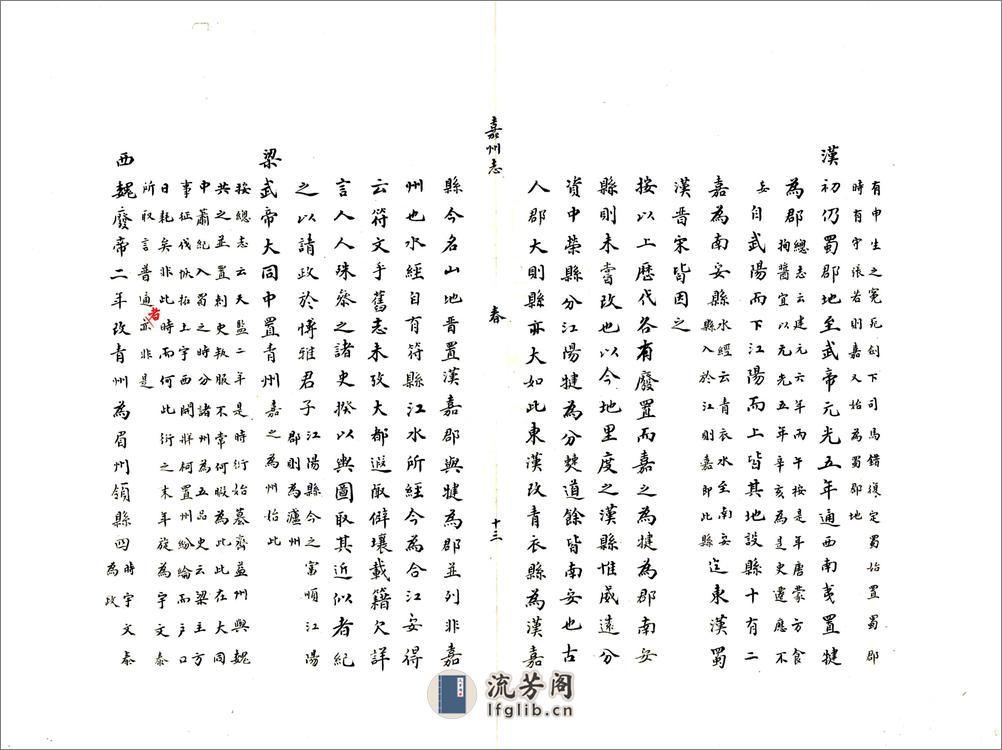 有申生之冤死創下司馬錯復定蜀始置蜀郡
時有守張若則嘉又始為蜀郡地
漢初仍蜀郡地至武帝元光五年通西南夷置犍
為郡總志云建元六年丙午按是年唐蒙方食
枸醬宜以元光五年辛亥為是史遷應不
妄自武陽而下江陽而上皆其地設縣十有二
嘉為南安縣水經云青衣水至南安
縣入於江則嘉即此縣迄東漢蜀
漢晉宋皆因之
按以上歷代各有廢置而嘉之為犍為郡南安
縣則未嘗改也以今地里度之漢縣惟威遠分
資中榮縣分江陽犍為分僰道餘皆南安也古
人郡大則縣亦大如此東漢改青衣縣為漢嘉
嘉州志
春
十三
縣今名山地晉置漢嘉郡與犍為郡並列非嘉
州也水經自有符縣江水所經今為合江安得
云符文乎舊志未攷大都遐陬僻壤載籍欠詳
言人人殊叅之諸史揆以輿圖取其近似者紀
之以請政於博雅君子江陽縣今之富順江陽
郡則為瀘州
梁武帝大同中置青州嘉之為州始此
按總志云天監二年是時衍始綦齊益州與魏
共之並置刺史叛服不常何暇為此此在大同
中蕭紀入蜀之時分諸州為五品史云梁主方
事征伐恢拓上宇西開牂柯置州紛綸而戶口
日耗矣非此時而何此衍之末年旋為宇文泰
所取言普通者亦非是
西魏廢帝二年改青州為眉州領縣四時宇文泰
為政
流芳阁
lfglib.cn